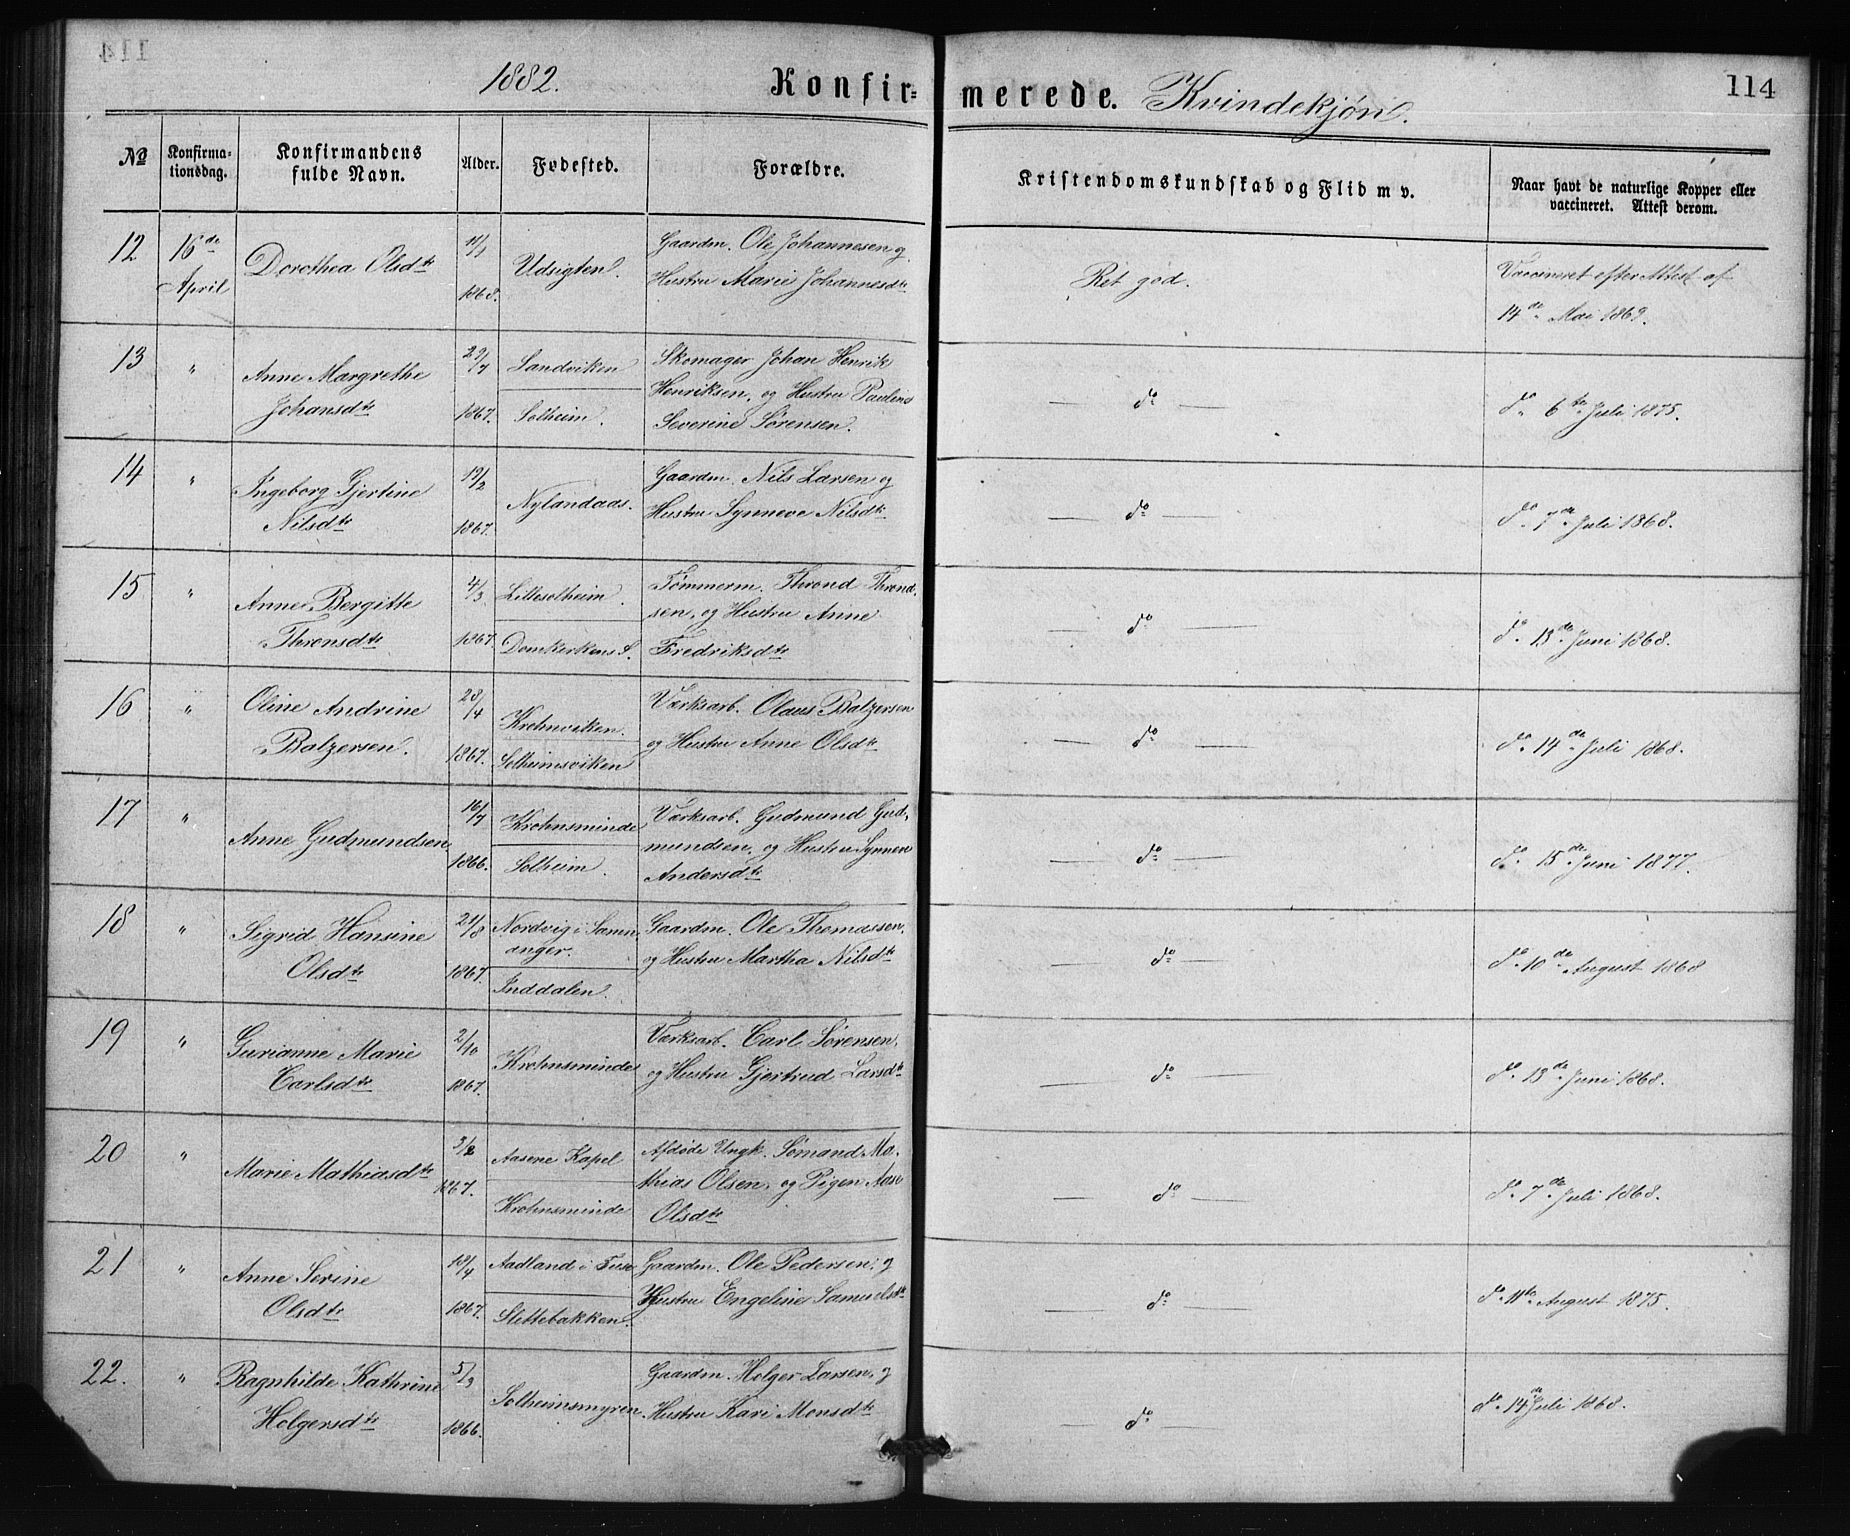 114
1882. Konfirmerede. Kvindekjøn.
No
Konfirma-
tionsdag.
Konfirmandens
fulde Navn.
Alder.
Fødested.
Forældre.
Kristendomskundskab og Flid m v.
Naar havt de naturlige Kopper eller
vaccineret. Attest derom.
12
16de
April
Dorothea Olsdtr
1868.
Udsigten.
Gaardm. Ole Johannesen og
Hustru Marie Johannesdtr
Ret god.
Vaccineret efter Attest af
14de Mai 1869.
13
"
Anne Margrethe
Johansdtr
29/7
1867.
Sandviken
Solheim.
Skomager Johan Henrik
Henriksen, og Hustru Pauline
Severine Sørensen.
— do —
do 6te Juli 1875.
14
"
Ingeborg Gjertine
Nilsdtr
19/2
1867.
Nylandaas.
Gaardm. Nils Larsen og
Hustru Synneve Nilsdtr
— do —
do 7de Juli 1868.
15
"
Anne Bergitte
Thronsdtr
4/3
1867.
Lillesolheim.
Domkirkens S.
Tømmerm. Thrond Thrond-
sen, og Hustru Anne
Fredriksdtr
— do —
do 13de Juni 1868.
16
"
Oline Andrine
Balzersen.
28/4
1867.
Krohnviken.
Solheimsviken
Værksarb. Olaus Balzersen
og Hustru Anne Olsdtr
— do —
do 14de Juli 1868.
17
"
Anne Gudmundsen
16/7
1866.
Krohnsminde
Solheim.
Værksarb. Gudmund Gud-
mundsen, og Hustru Synneve
Andersdtr
— do —
do 15de Juni 1877.
18
"
Sigrid Hansine
Olsdtr
21/8
1867.
Nordvig i Samn-
anger.
Inddalen.
Gaardm. Ole Thomassen,
og Hustru Martha Nilsdtr
— do —
do 10de August 1868
19
"
Gurianne Marie
Carlsdtr
2/10
1867.
Krohnsminde
Værksarb. Carl Sørensen,
og Hustru Gjertrud Larsdtr
— do —
do 13de Juni 1868.
20
"
Marie Mathiasdtr
1867.
Aasene Kapel
Krohnsminde
Afdøde Ungk. Sømand Ma-
thias Olsen, og Pigen Aase
Olsdtr
— do —
do 7de Juli 1868.
21
"
Anne Serine
Olsdtr
18/4
1867.
Aadland i Fuse
Slettebakken.
Gaardm. Ole Pedersen, og
Hustru Engeline Samuelsdtr
— do —
do 11te August 1875.
22.
"
Ragnhilde Kathrine
Holgersdtr
5/9
1866.
Solheimsmyren
Gaardm. Holger Larsen, og
Hustru Kari Monsdtr
— do —
do 14de Juli 1868.